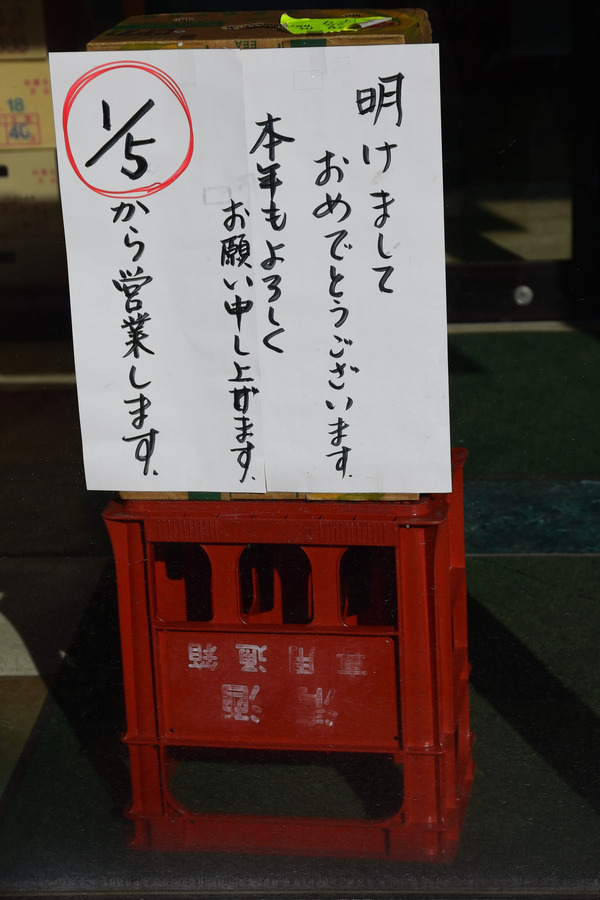 明けまして
おめでとうございます。
本年もよろしく
お願い申し上げます。
1/5
から営業します。
18
40
清酒
専用通箱